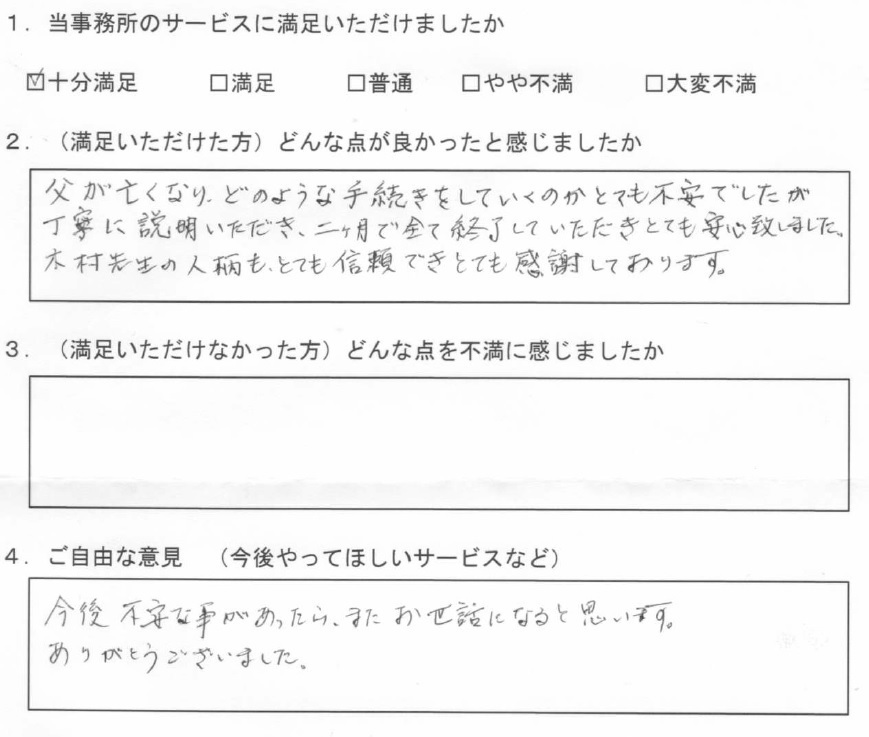 1. 当事務所のサービスに満足いただけましたか
☑十分満足 □満足 □普通 □やや不満 □大変不満
2. (満足いただけた方)どんな点が良かったと感じましたか
父が亡くなり、どのような手続きをしていくのかとても不安でしたが
丁寧に説明いただき、二ヶ月で全て終了していただきとても安心致しました。
木村先生の人柄も、とても信頼できとても感謝しております。
3. (満足いただけなかった方)どんな点を不満に感じましたか
4. ご自由な意見 (今後やってほしいサービスなど)
今後不安な事があったら、またお世話になると思います。
ありがとうございました。